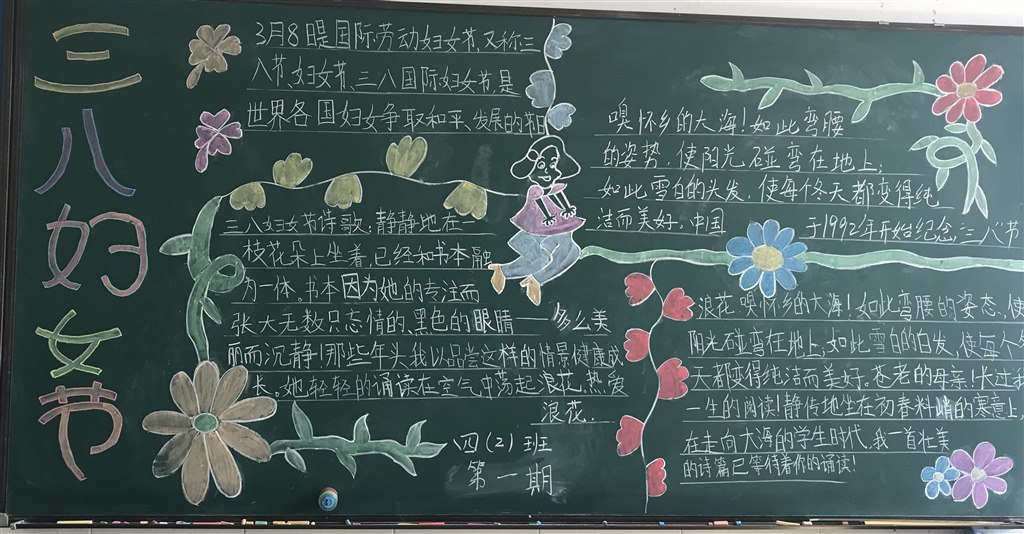 三八妇女节
3月8是国际劳动妇女节,又称三
八节,妇女节,三八国际妇女节,是
世界各国妇女争取和平、发展的节日
三八妇女节诗歌:静静地在一
枝花朵上坐着,已经和书本融
为一体。书本因为她的专注而
张大无数只忘情的、黑色的眼睛——多么美
丽而沉静!那些年头我以品尝这样的情景健康成
长。她轻轻的诵读在空气中荡起浪花,热爱
浪花..
四(2)班
第一期
嗅怀乡的大海!如此弯腰
的姿势,使阳光碰弯在地上;
如此雪白的头发,使每个冬天都变得纯
洁而美好。中国
于1992年开始纪念“三八”节
浪花嗅怀乡的大海!如此弯腰的姿态,使
阳光碰弯在地上,如此雪白的白发,使每个
天都变得纯洁而美好。苍老的母亲!长过我
一生的阅读!静传地坐在初春料峭的寒意上,
在走向大海的学生时代,我一首壮美
的诗篇已等待着你的诵读!